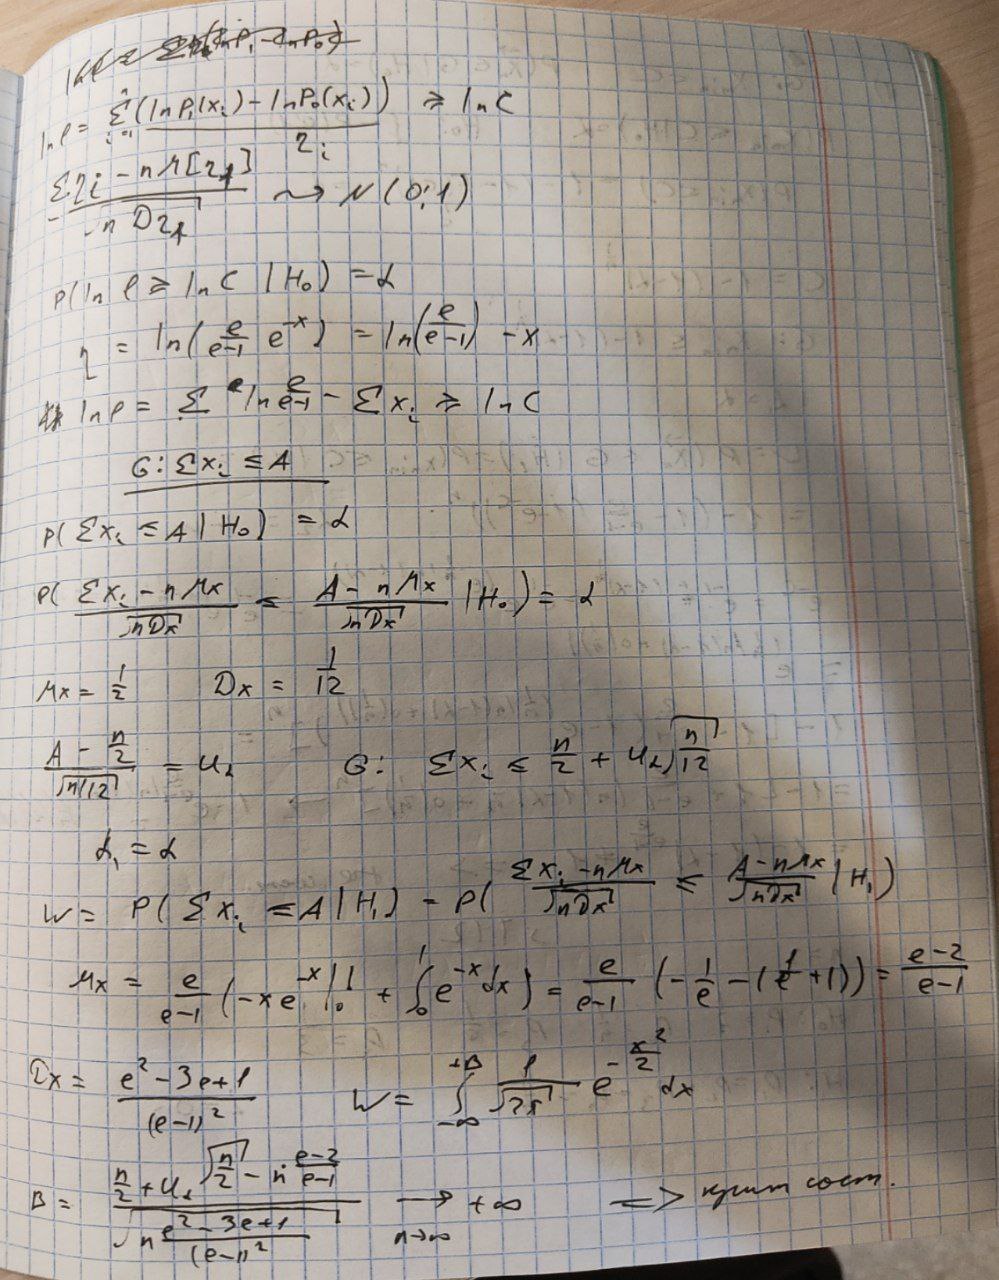 ln ρ = Σ_{i=1}^{n} (ln P₁(x_i) - ln P₀(x_i)) ≥ ln C
η_i
(Σ η_i - n M[η_1]) / √(n D η_1) ⇝ N(0;1)
P(ln ρ ≥ ln C | H₀) = α
η = ln(e/(e-1) e^{-x}) = ln(e/(e-1)) - x
ln ρ = Σ ln e/(e-1) - Σ x_i ≥ ln C
G: Σ x_i ≤ A
P(Σ x_i ≤ A | H₀) = α
P((Σ x_i - n Mx)/√(n Dx) ≤ (A - n Mx)/√(n Dx) | H₀) = α
Mx = 1/2 Dx = 1/12
(A - n/2)/√(n/12) = u_α G: Σ x_i ≤ n/2 + u_α √(n/12)
α₁ = α
W = P(Σ x_i ≤ A | H₁) = P((Σ x_i - n Mx)/√(n Dx) ≤ (A - n Mx)/√(n Dx) | H₁)
Mx = e/(e-1) (-x e^{-x} |₀¹ + ∫₀¹ e^{-x} dx) = e/(e-1) (-1/e - (1/e + 1)) = (e-2)/(e-1)
Dx = (e² - 3e + 1)/(e-1)² W = ∫_{-∞}^{+B} 1/√(2π) e^{-x²/2} dx
B = (n/2 + u_α √(n/2) - n (e-2)/(e-1)) / √(n (e² - 3e + 1)/(e-1)²) →_{n→∞} +∞ => крит сост.